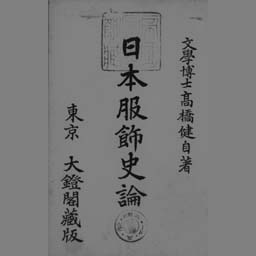 文學博士高橋健自著
日本服飾史論
東京 大鐙閣藏版